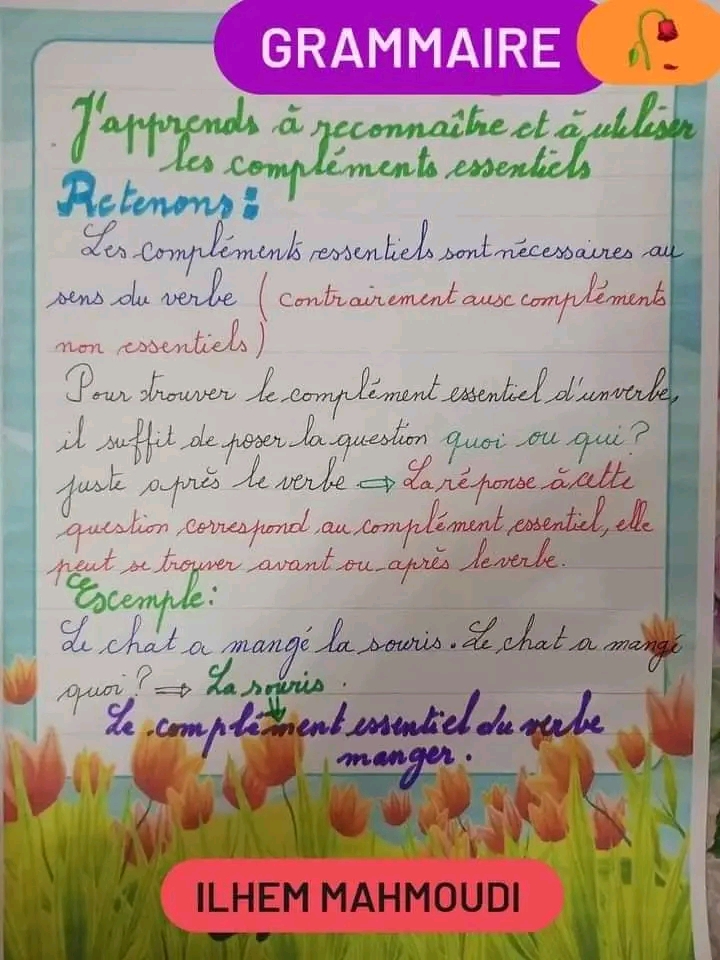 GRAMMAIRE
J'apprends à reconnaître et à utiliser
les compléments essentiels
Retenons :
Les compléments essentiels sont nécessaires au
sens du verbe ( contrairement aux compléments
non essentiels )
Pour trouver le complément essentiel d'un verbe,
il suffit de poser la question quoi ou qui ?
juste après le verbe ⇒ La réponse à cette
question correspond au complément essentiel, elle
peut se trouver avant ou après le verbe.
Exemple :
Le chat a mangé la souris. Le chat a mangé
quoi ? ⇒ La souris.
Le complément essentiel du verbe
manger.
ILHEM MAHMOUDI